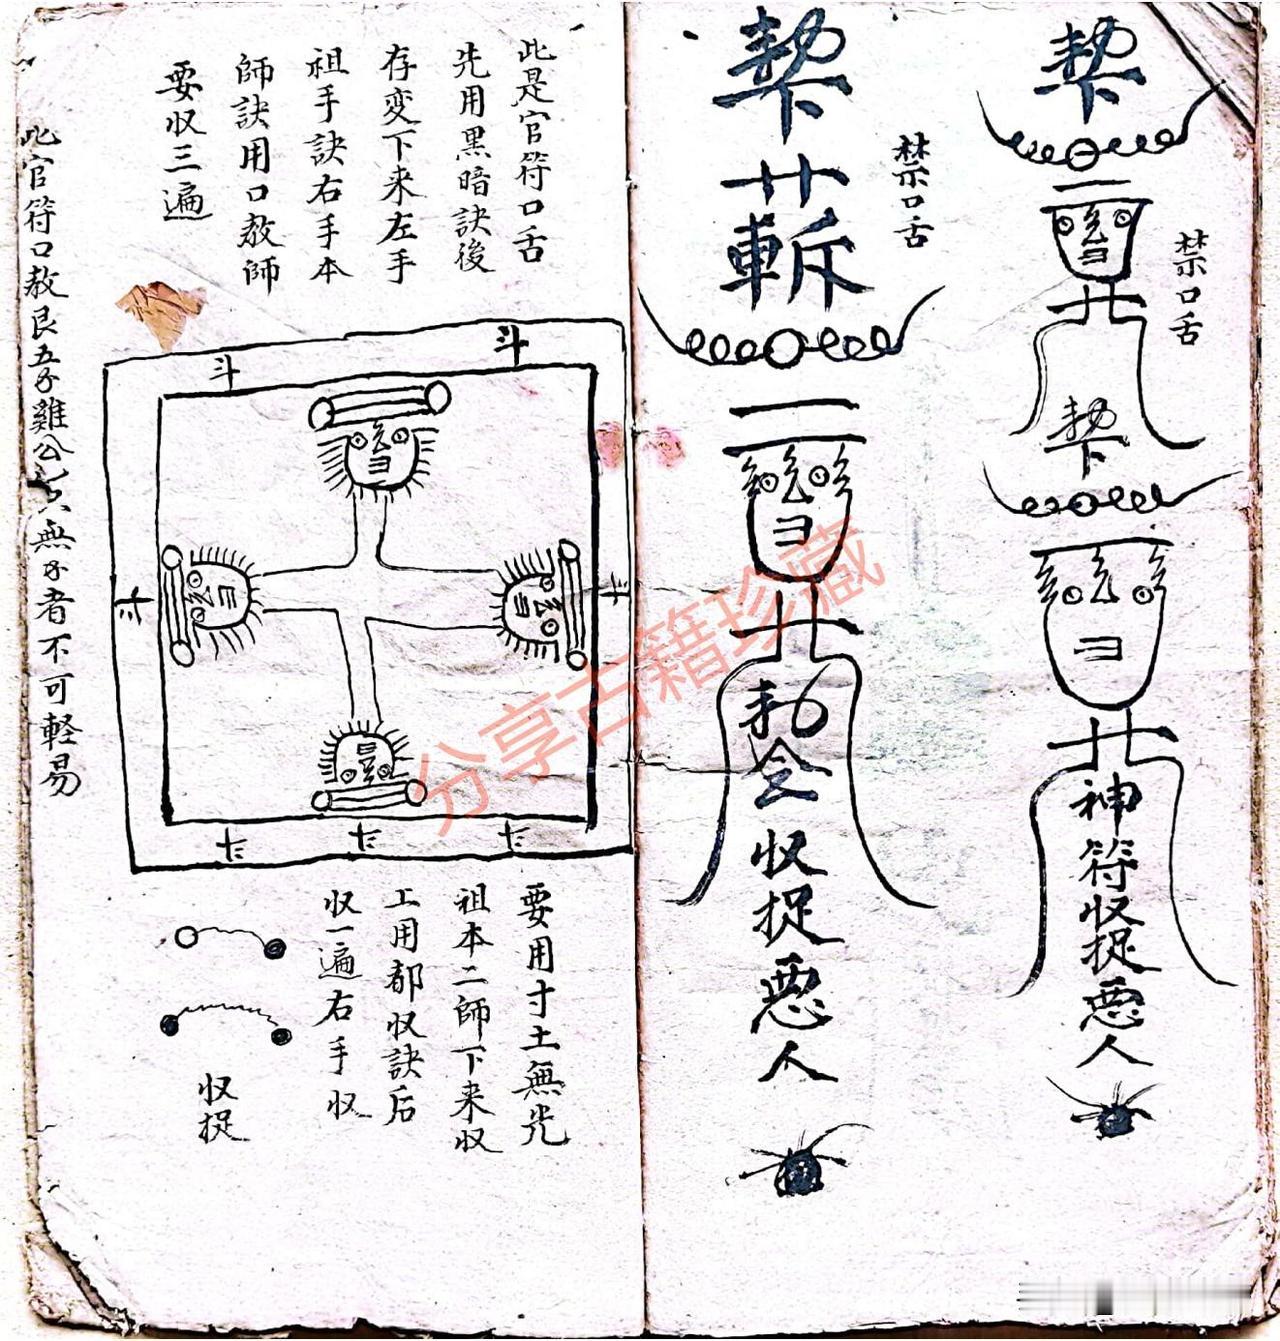 禁口舌
神符收捉悪人
禁口舌
斬
勅令收捉悪人
此是官符口舌
先用黑暗訣後
存変下来左手
祖手訣右手本
師訣用口教師
要収三遍
斗
斗
要用寸土無光
祖本二師下来収
工用都収訣后
収一遍右手収
収捉
此官符口教艮五子雞公
無子者不可軽易
分享古籍珍藏